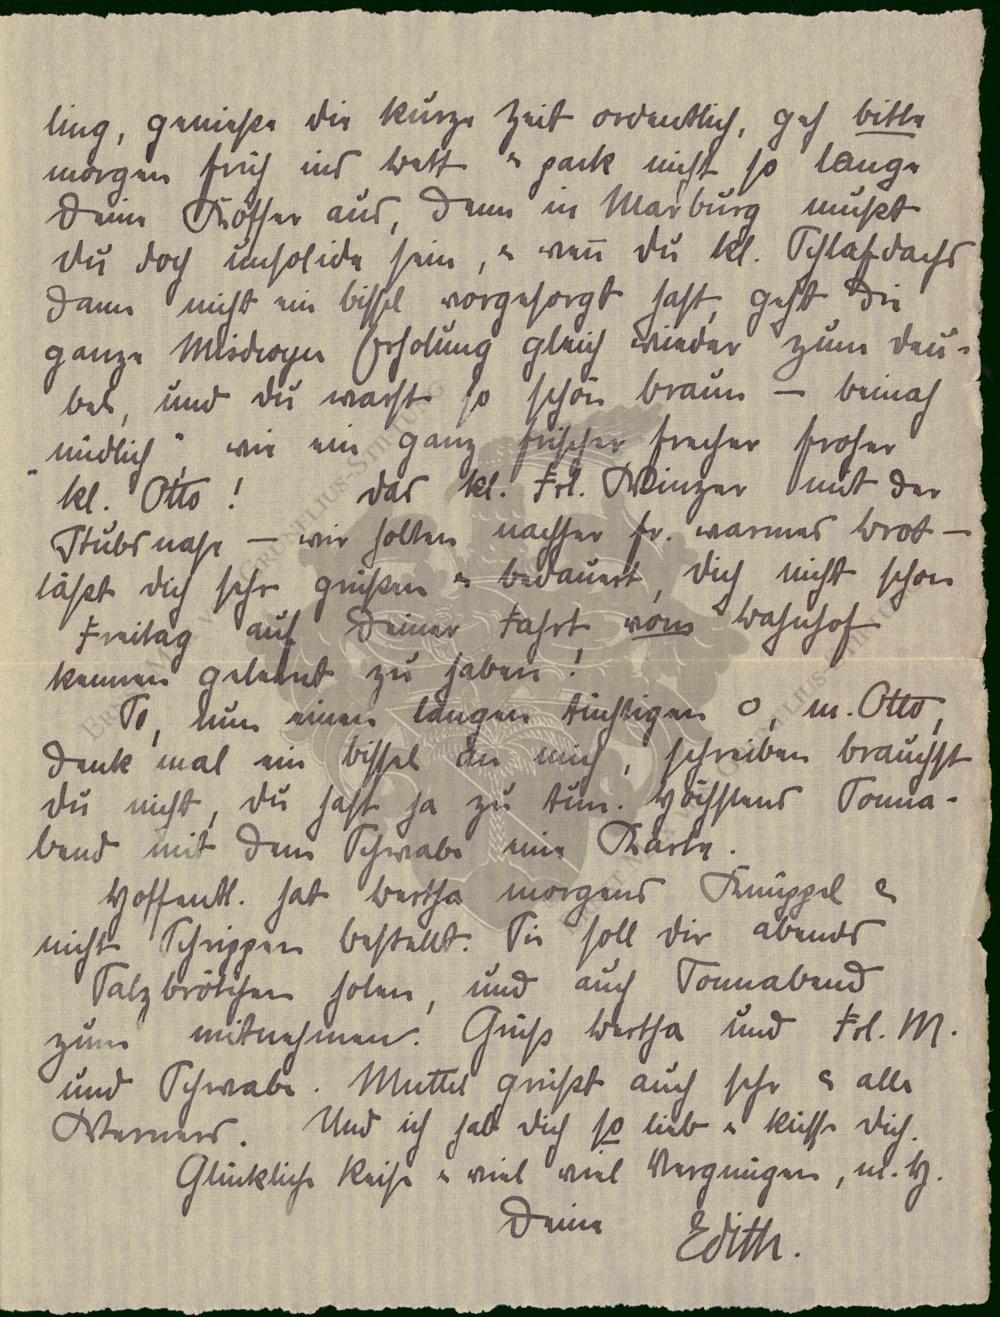 ling, genieße die kurze Zeit ordentlich, geh bitte
morgen früh ins Bett & pack nicht so lange
Deine Koffer aus, denn in Marburg mußt
Du doch unsolide sein, & wenn̄ Du kl. Schlafdachs
dann nicht ein bissel vorgesorgt hast, geht die
ganze Misdroyer Erholung gleich wieder zum Deu-
bel, und Du warst so schön braun — beinah
„niedlich“, wie ein ganz frischer frecher froher
kl. Otto! Das kl. Frl. Winzer mit der
Stubsnase — wir holten nachher fr. warmes Brot —
läßt Dich sehr grüßen & bedauert, Dich nicht schon
Freitag auf Deiner Fahrt vom Bahnhof
kennen gelernt zu haben!
So, nun einen langen tüchtigen O, m. Otto,
denk mal ein bissel an mich, schreiben brauchst
Du nicht, Du hast ja zu tun. Höchstens Sonna-
bend mit dem Schwabe eine Karte.
Hoffentl. hat Bertha morgens Knüppel &
nicht Schrippen bestellt. Sie soll Dir abends
Salzbrötchen holen, und auch Sonnabend
zum mitnehmen. Grüß Bertha und Frl. M.
und Schwabe. Muttel grüßt auch sehr & alle
Werners. Und ich hab Dich so lieb & küsse Dich.
Glückliche Reise & viel viel Vergnügen, m. H.
Deine Edith.